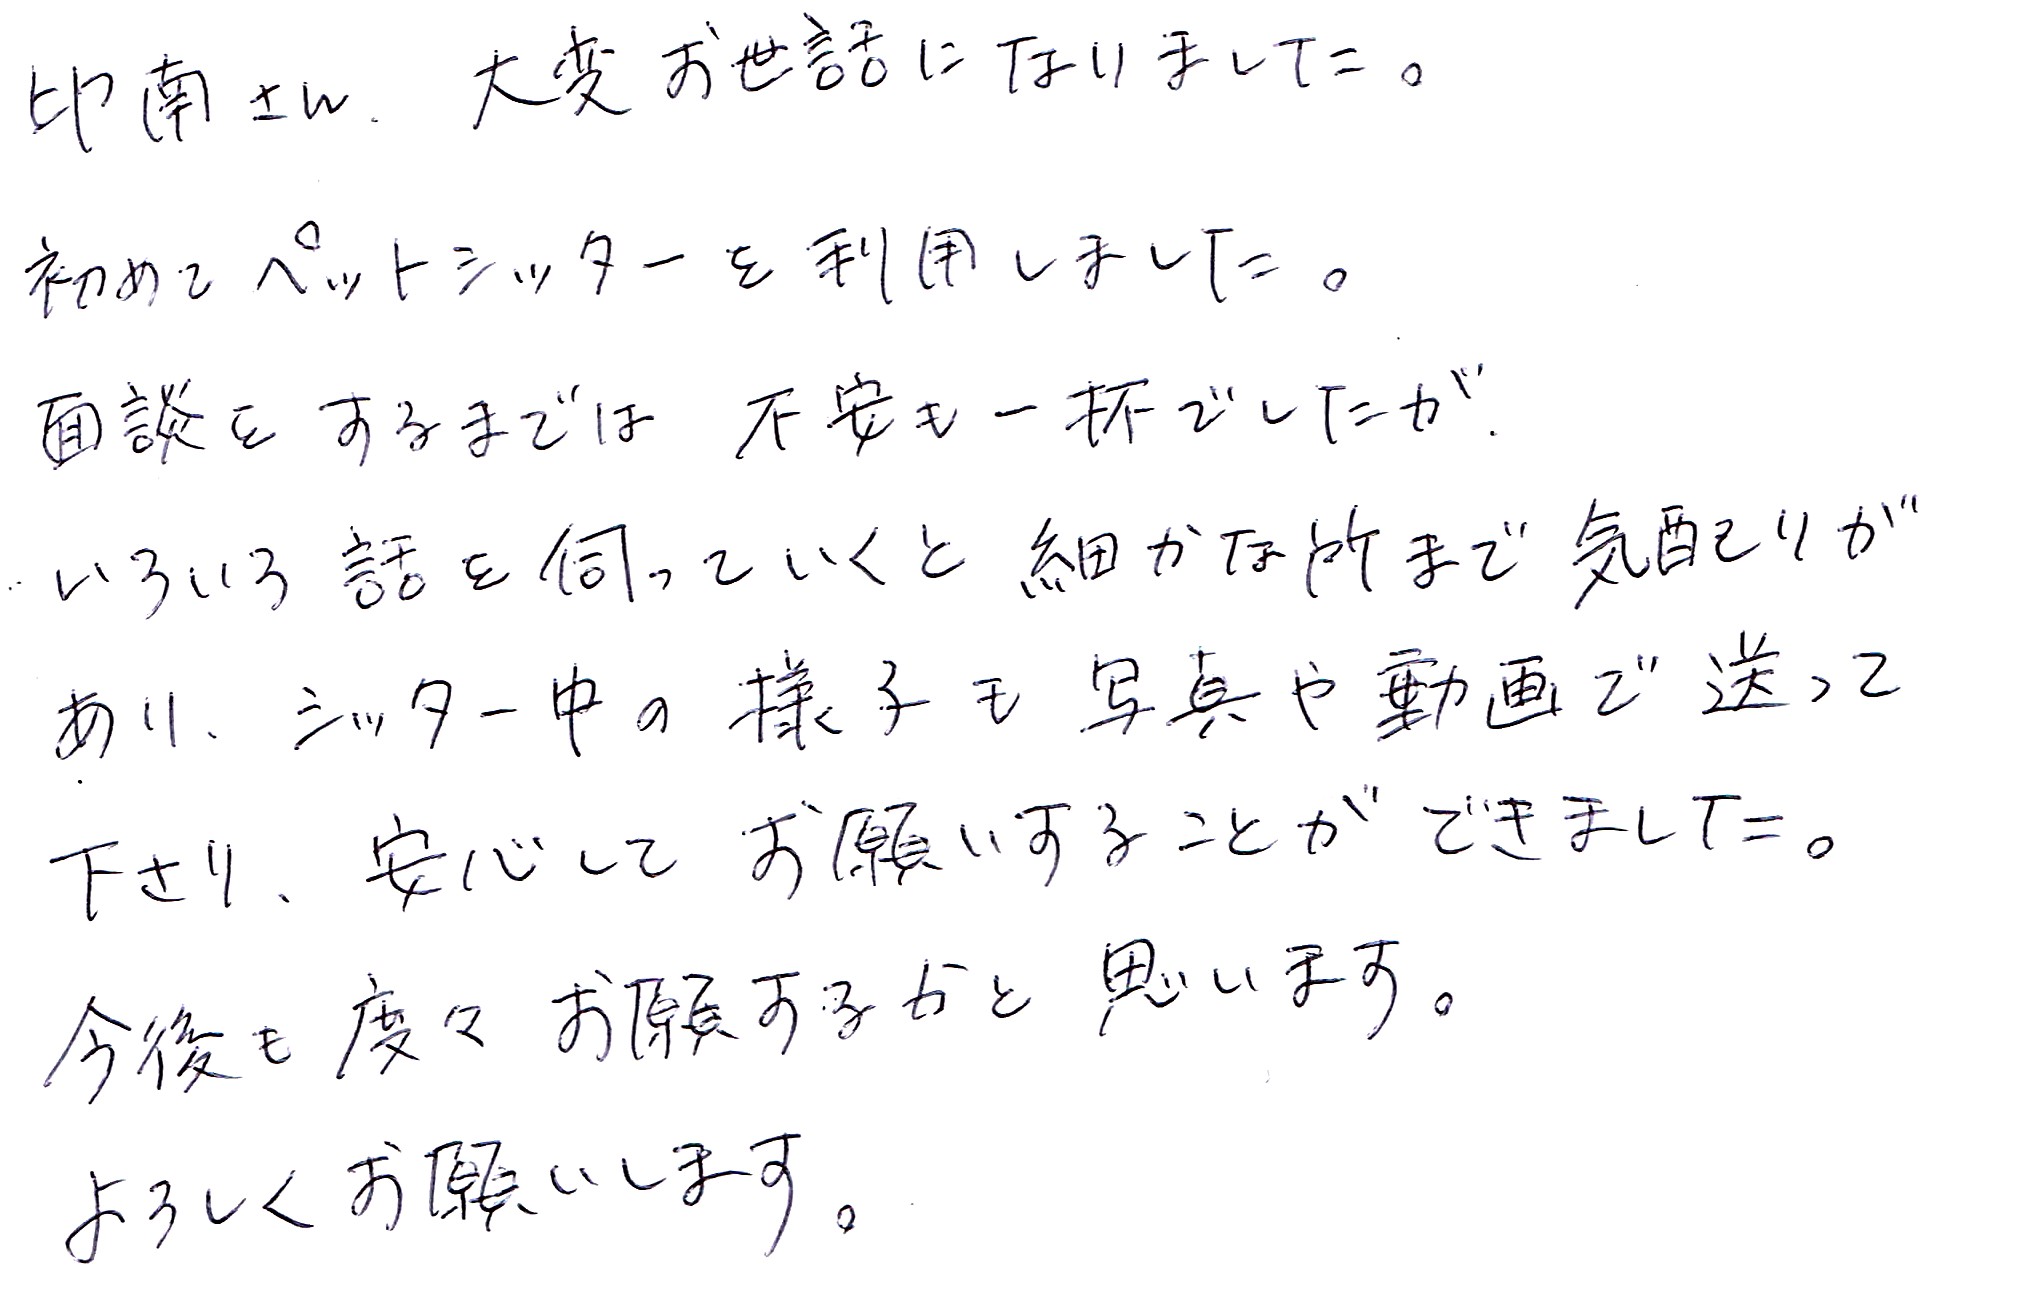 印南さん、大変お世話になりました。
初めてペットシッターを利用しました。
面談をするまでは不安も一杯でしたが、
いろいろ話を伺っていくと細かな所まで気配りが
あり、シッター中の様子も写真や動画で送って
下さり、安心してお願いすることができました。
今後も度々お願するかと思います。
よろしくお願いします。